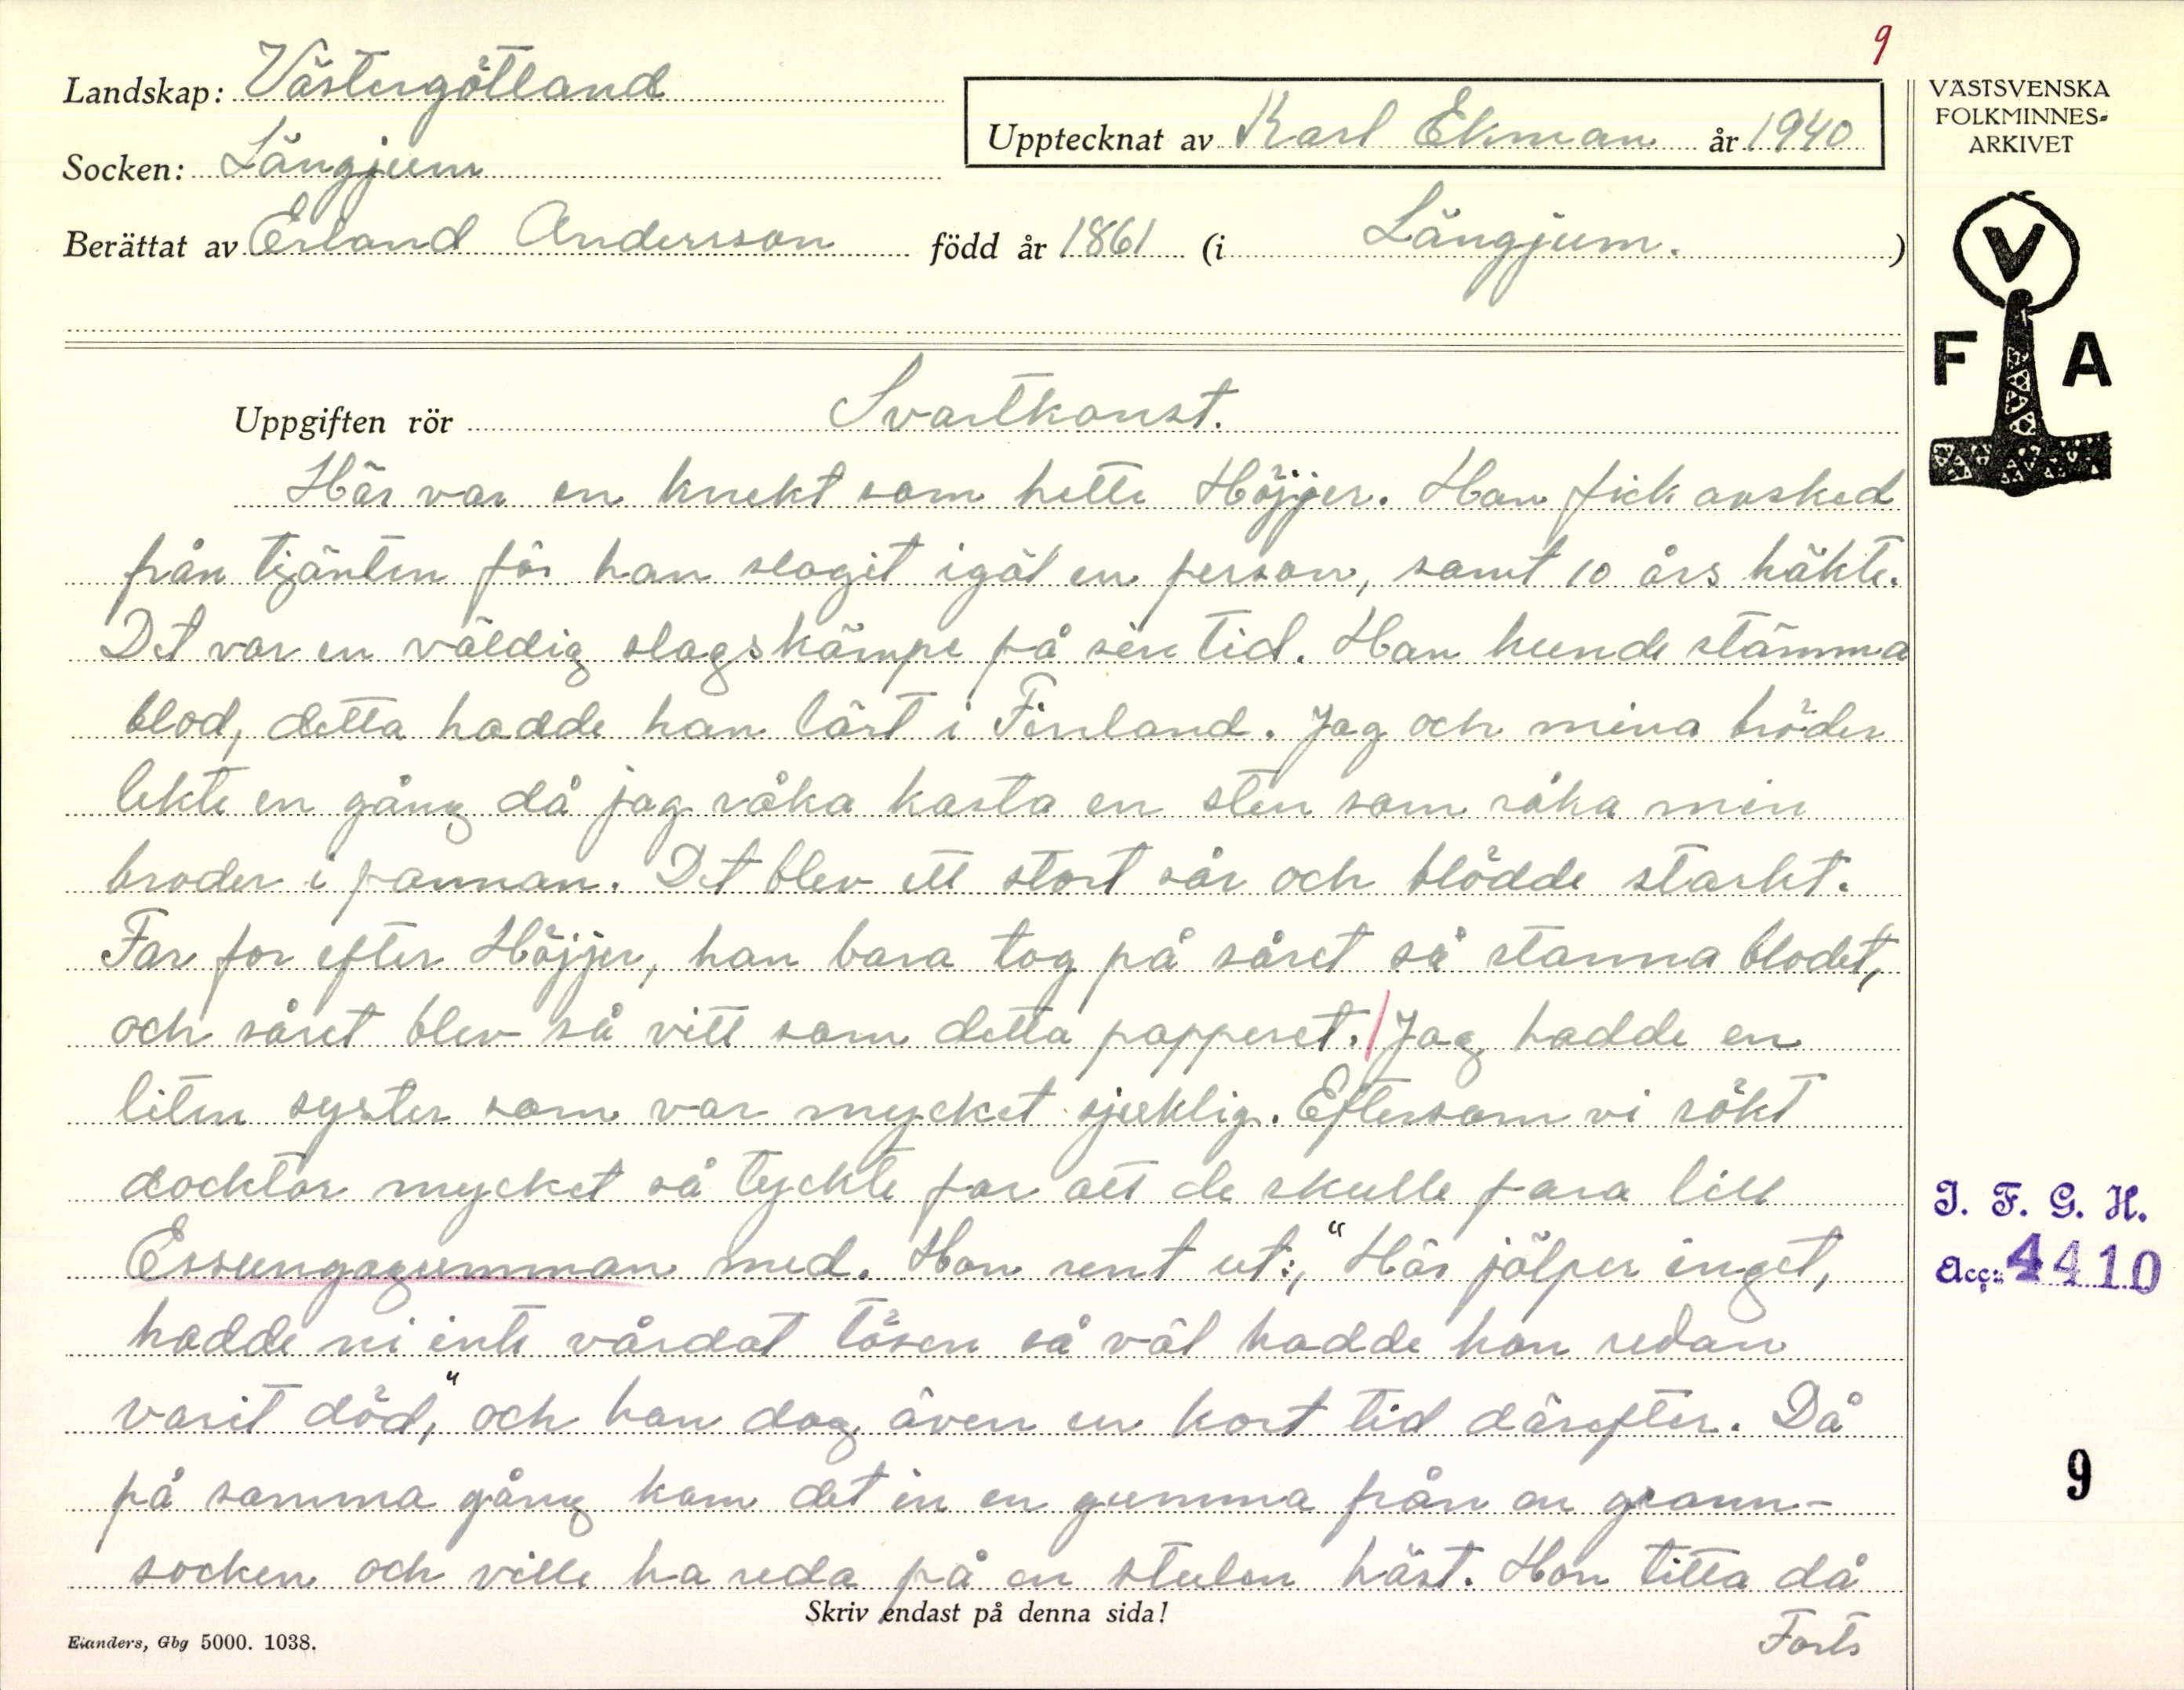 9
Landskap: Västergötland
VÄSTSVENSKA
FOLKMINNES-
ARKIVET
Upptecknat av Karl Ekman år 1940
Socken: Längjum
Berättat av Erland Andersson född år 1861 (i Längjum.)
V
F A
Uppgiften rör Svartkonst.
Här var en knekt som hette Höjjer. Han fick avsked
från tjänten för han slagit igäl en person, samt 10 års häkte.
Det var en väldig slagskämpe på sin tid. Han kunde stämma
blod, detta hadde han lärt i Finland. Jag och mina bröder
lekte en gång då jag råka kasta en sten som råka min
broder i pannan. Det blev ett stort sår och blödde starkt.
Far for efter Höjjer, han bara tog på såret så stanna blodet,
och såret blev så vitt som detta papperet. / Jag hadde en
liten syster som var mycket sjuklig. Eftersom vi sökt
docktor mycket så tyckte far att de skulle fara till
Essungagumman med. Hon rent ut:, "Här jälper inget,
hadde ni inte vårdat tösen så väl hadde hon redan
varit död," och hon dog även en kort tid därefter. Då
på samma gång kom det in en gumma från en grann-
socken och ville ha reda på en stulen häst. Hon titta då
Forts
Skriv endast på denna sida!
Elanders, Gbg 5000. 1038.
I. F. G. H.
Acc: 4410
9